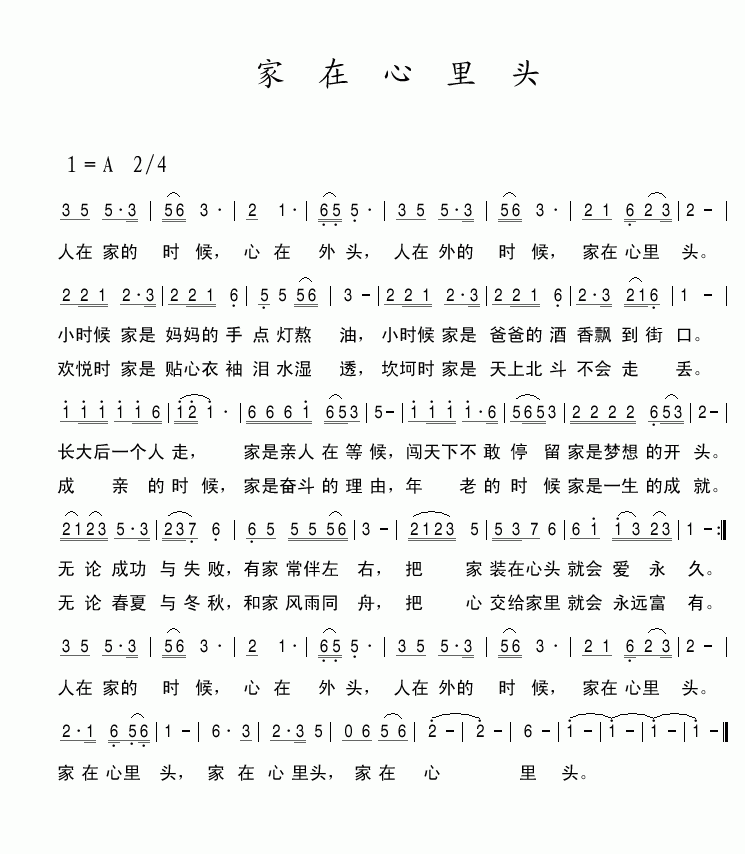 家 在 心 里 头
1 = A 2/4
3 5 5·3 | 56 3· | 2 1· | 65 5· | 35 5·3 | 56 3· | 2 1 6 2 3 | 2 – |
人在 家的 时 候， 心 在 外 头， 人在 外的 时 候， 家在 心里 头。
2 2 1 2·3 | 2 2 1 6 | 5 5 56 | 3 – | 2 2 1 2·3 | 2 2 1 6 | 2·3 216 | 1 – |
小时候 家是 妈妈的 手 点 灯熬 油， 小时候 家是 爸爸的 酒 香飘 到 街 口。
欢悦时 家是 贴心衣 袖 泪 水湿 透， 坎坷时 家是 天上北 斗 不会 走 丢。
1 1 1 1 1 6 | 1 2 1· | 6 6 6 1 653 | 5– | 1 1 1 1·6 | 5653 | 2 2 2 2 653 | 2– |
长大后一个人 走， 家是亲人 在 等 候，闯天下不 敢 停 留 家是梦想 的开 头。
成 亲 的 时 候， 家是奋斗 的 理 由，年 老 的 时 候 家是一生 的成 就。
2123 5·3 | 237 6 | 6 5 5 5 56 | 3 – | 2123 5 | 5 3 7 6 | 6 1 1 3 23 | 1 –:|
无 论 成功 与 失 败，有家 常伴左 右， 把 家 装在心头 就会 爱 永 久。
无 论 春夏 与 冬 秋，和家 风雨同 舟， 把 心 交给家里 就会 永远富 有。
3 5 5·3 | 56 3· | 2 1· | 65 5· | 35 5·3 | 56 3· | 2 1 6 2 3 | 2 – |
人在 家的 时 候， 心 在 外 头， 人在 外的 时 候， 家在 心里 头。
2·1 6 56 | 1 – | 6·3 | 2·3 5 | 0 6 5 6 | 2 – | 2 – | 6 – | 1 – | 1 – | 1 – | 1 – ||
家 在 心里 头， 家 在 心 里头， 家 在 心 里 头。